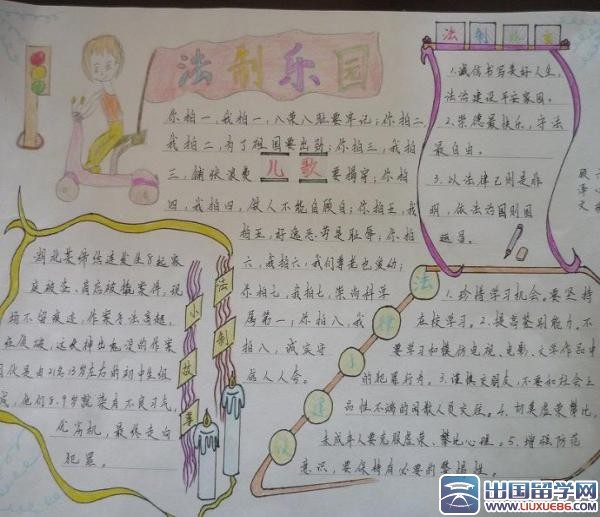 法制乐园
你拍一,我拍一,八荣八耻要牢记;你拍二
我拍二,为了祖国要出力;你拍三,我拍
三,铺张浪费 儿歌 要揭穿;你拍
四,我拍四,做人不能自顾自;你拍五,我
拍五,好逸恶劳是耻辱;你拍
六,我拍六,我们尊老也爱幼;
你拍七,我拍七,崇尚科学
属第一,你拍八,我
拍八,诚实守
信人人夸。
法制格言
1.诚信书写美好人生,
法治建设平安家园。
2.崇德最快乐,守法
最自由。
3.以法律己则是非
明,依法治国则国
运昌。
法制小故事
湖北某师傅连发生8起家
庭被盗、商店被撬案件,现
场不留痕迹,作案手法高超,
在侦破,这
伙神出鬼没的作案
团伙是由
初中生组
成,他们8、9岁就染有不良习气,
最终走向
犯罪。
法律小建议
1.珍惜学习机会。要坚持
在校学习。2.提高鉴别能力。不
要学习和模仿电视、电影、文学作品中
的犯罪行为。3.谨慎交朋友,不要和社会上
品性不端的闲散人员交往。4.切莫虚荣攀比,
未成年人要克服虚荣、攀比心理。5.增强防范
意识,要保持有必要的警惕性。
出国留学网
WWW.LIUXUE86.COM